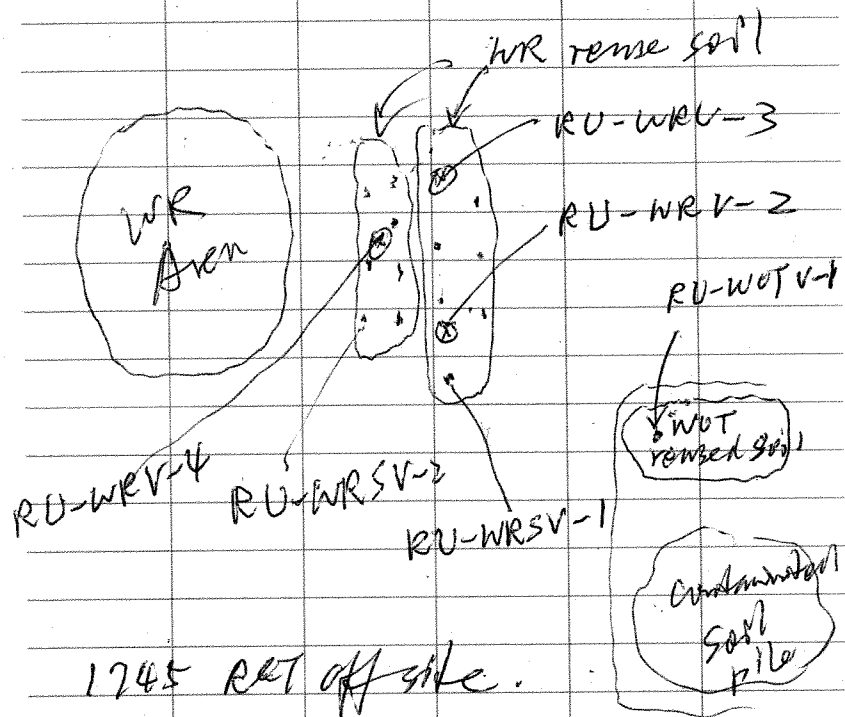 WR reuse soil
RU-WRV-3
WR
Area
RU-WRV-2
RU-WOTV-1
WOT
reused soil
RU-WRV-4
RU-WRSV-2
RU-WRSV-1
Contaminated
soil
pile
1745 RET off site.